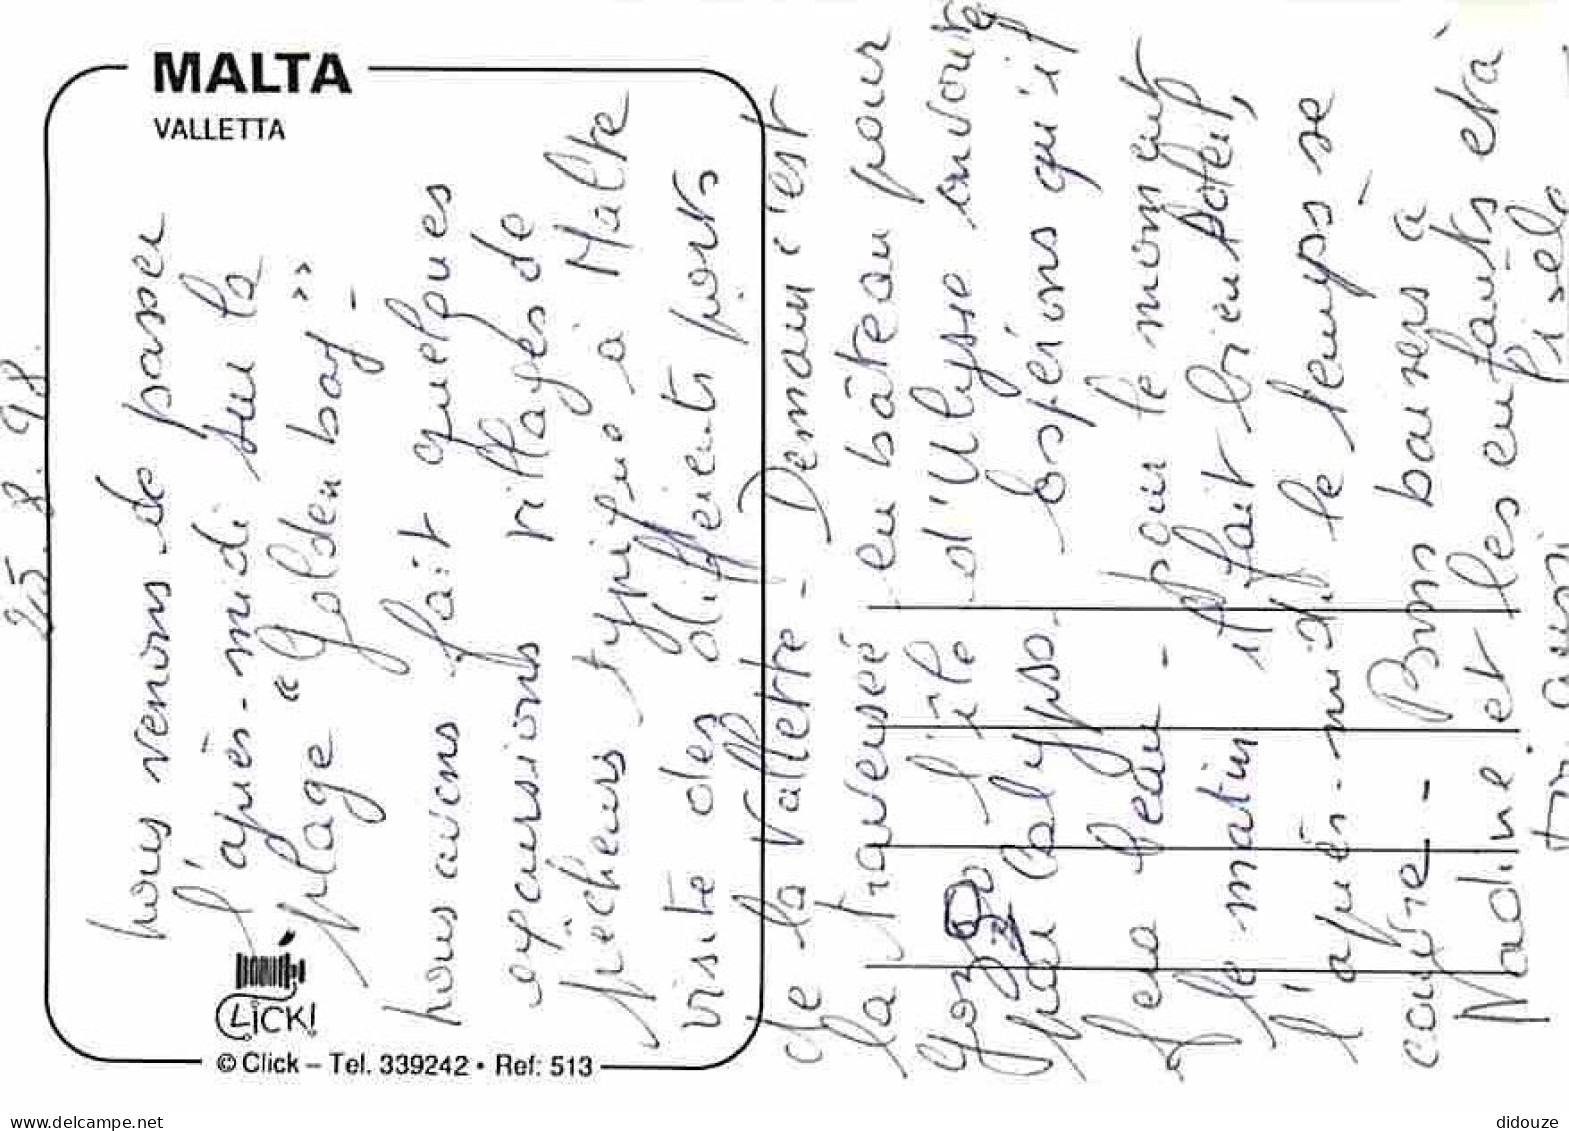 MALTA
VALLETTA
25.8.98.
nous venons de passer
l'après-midi sur la
plage "Golden bay" -
nous avons fait quelques
excursions villages de
pêcheurs typique à Malte
visite des différents ports
de la Vallette - Demain c'est
la traversée en bâteau pour
Gozo l'île d'Ulysse envouté
par Calypso. espérons qu'il
fera beau - pour le moment
le matin il fait bien soleil,
l'après-midi le temps se
couvre - Bons baisers à
Nadine et les enfants et à
toi aussi
CLICK!
© Click – Tel. 339242 • Ref: 513
www.delcampe.net
didouze